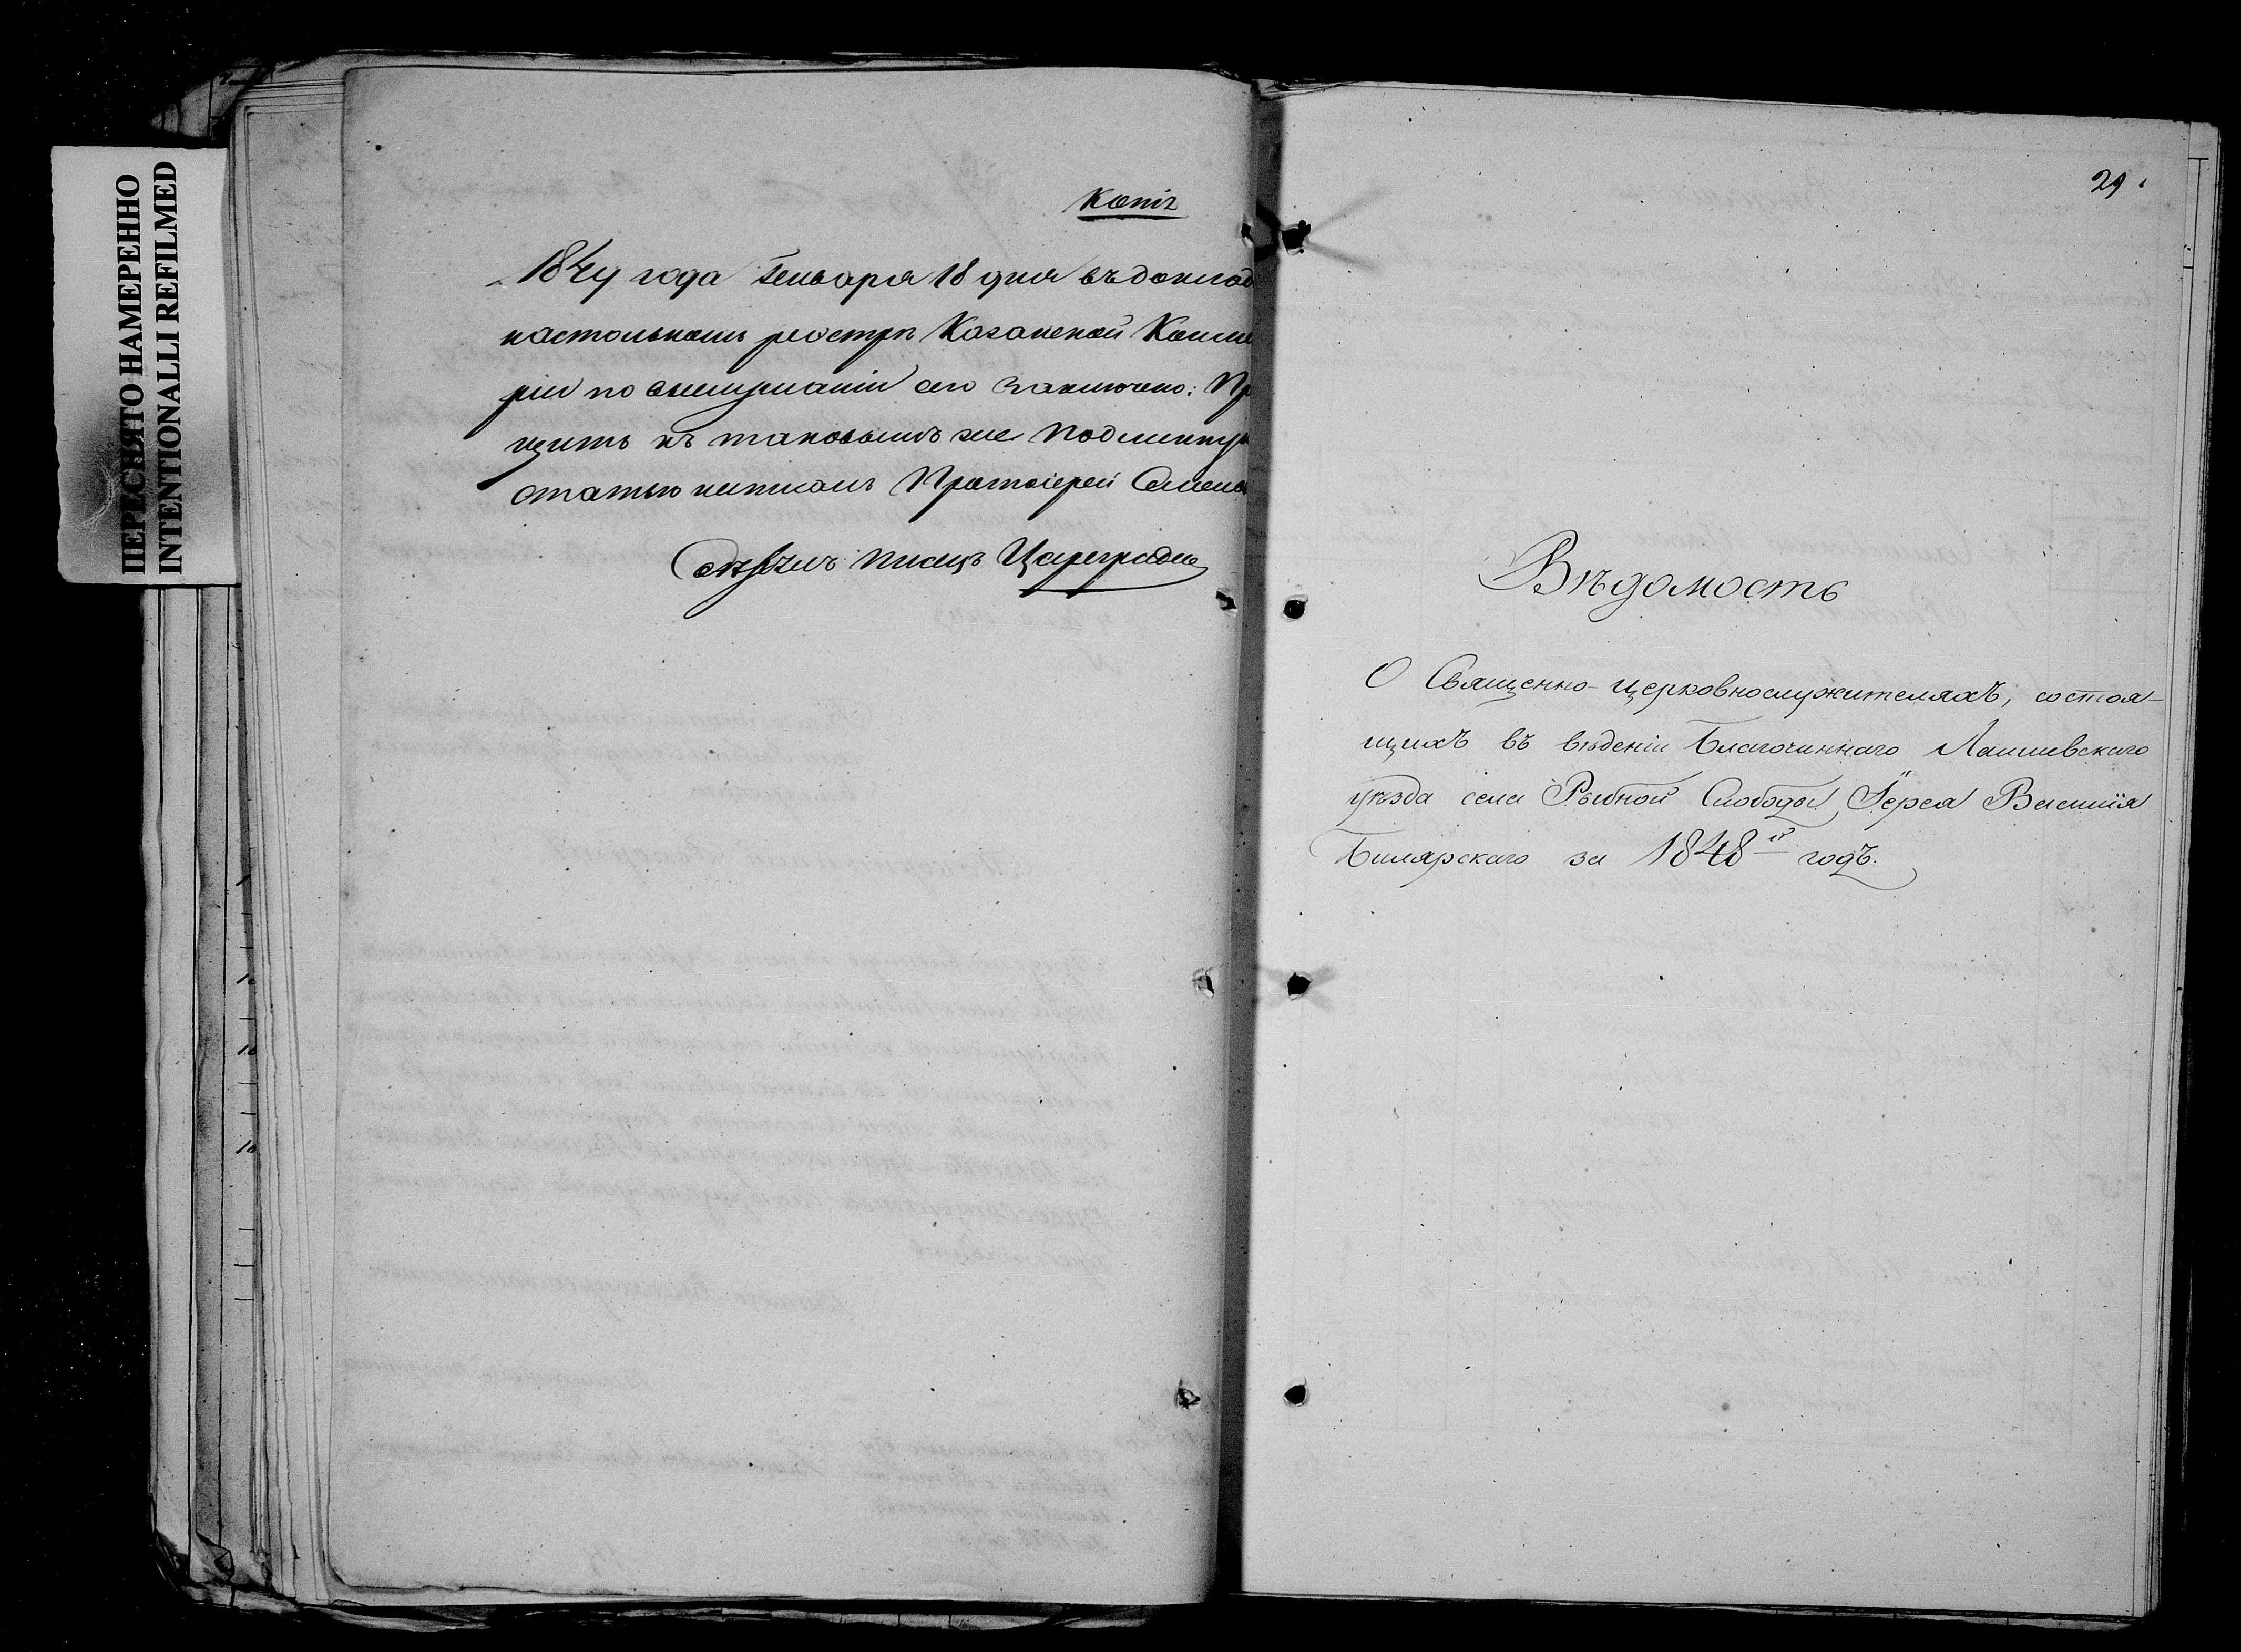 ПЕРЕСНЯТО НАМЕРЕННО
INTENTIONALLI REFILMED
Копія
1849 года Генваря 18 дня въ доклад
настольномъ реэстрѣ Казанской Консисто
ріи по выслушаніи сего заключено: Пр
щить къ таковымъ же Подлинную
статью читалъ Протоіерей
Свѣрялъ писецъ
29
Вѣдомость
О Священно-церковнослужителяхъ, состоя-
щихъ въ вѣденіи Благочиннаго Лаишевскаго
уѣзда села Рыбной Слободы Іерея Василія
Билярскаго за 1848й годъ.
10
10
10